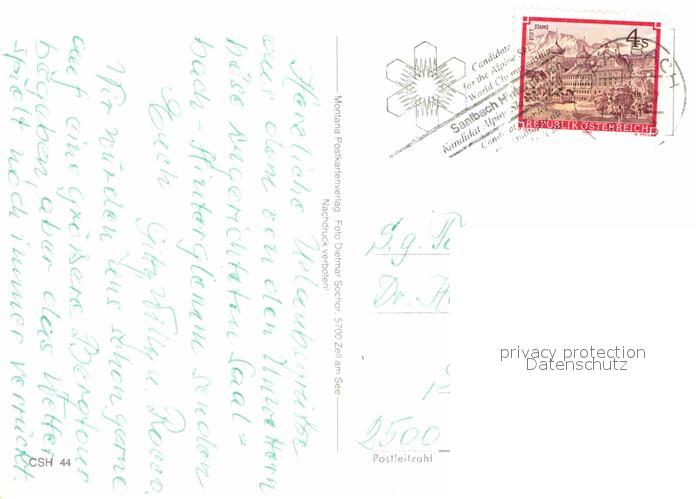 Herzliche Urlaubsgrüße
aus dem von den Unwettern
böse zugerichteten Saal=
bach Hinterglemm senden
Euch
Gitty Willy u. Rocco.
Wir würden uns schon gerne
auf eine größere Bergtour
begeben aber das Wetter
spielt noch immer verrückt.
CSH 44
Montana Postkartenverlag Foto Dietmar Sochor, 5700 Zell am See
Nachdruck verboten!
Candidate
for the Alpine Ski
World Championship
Saalbach Hint
Kandidat Alpine
STIFT STAMS
4S
REPUBLIK ÖSTERREICH
S.g.
Dr.
2500
Postleitzahl
privacy protection
Datenschutz